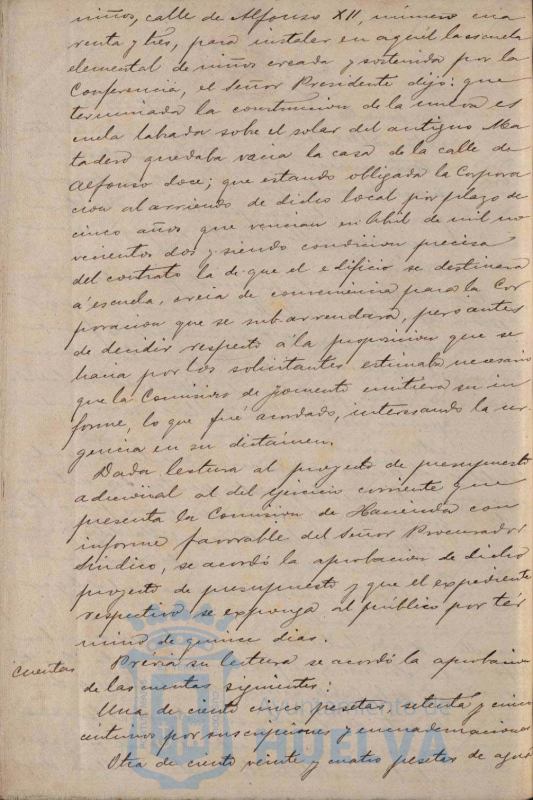 niños, calle de Alfonso XII, número cua
renta y tres, para instalar en aquel la escuela
elemental de niños creada y sostenida por la
Conferencia, el Señor Presidente dijo: que
terminada la construccion de la nueva es
cuela labrada sobre el solar del antiguo Ma
tadero quedaba vacia la casa de la calle de
Alfonso doce; que estando obligada la Corpora
cion al arriendo de dicho local por plazo de
cinco años que vencian en Abril de mil no
vecientos dos y siendo condicion precisa
del contrato la de que el edificio se destinara
á escuela, creia de conveniencia para la Cor
poracion que se subarrendara, pero antes
de decidir respecto á la proposicion que se
hacia por los solicitantes estimaba necesario
que la Comision de Fomento emitiera su in
forme, lo que fué acordado, interesando la ur
gencia en su dictámen.
Dada lectura al proyecto de presupuesto
adicional al del ejercicio corriente que
presenta la Comision de Hacienda con
informe favorable del Señor Procurador
Síndico, se acordó la aprobacion de dicho
proyecto de presupuesto y que el expediente
respectivo se exponga al público por tér
mino de quince dias.
Cuentas
Prévia su lectura se acordó la aprobacion
de las cuentas siguientes:
Una de ciento cinco pesetas, setenta y cinco
céntimos por suscripciones y encuadernaciones
Otra de ciento veinte y cuatro pesetas de agua
HUELVA